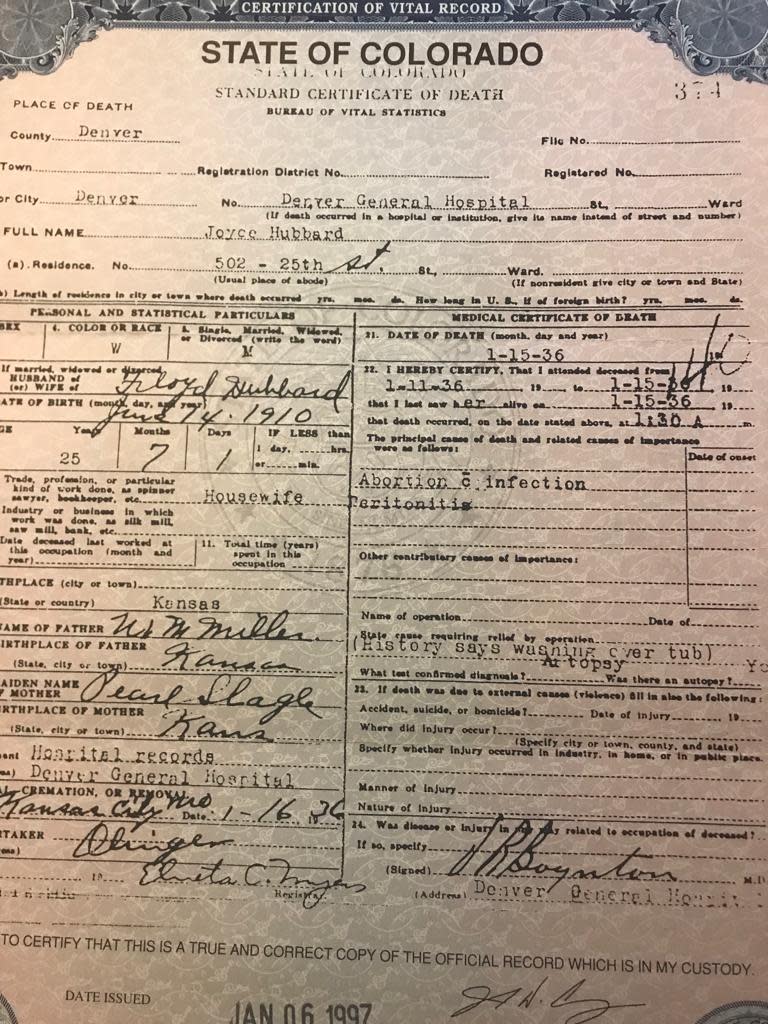 CERTIFICATION OF VITAL RECORD
STATE OF COLORADO
STATE OF COLORADO
STANDARD CERTIFICATE OF DEATH
BUREAU OF VITAL STATISTICS
PLACE OF DEATH
County Denver
File No.
Town
Registration District No.
Registered No.
or City Denver
No. Denver General Hospital St., Ward
(If death occurred in a hospital or institution, give its name instead of street and number)
FULL NAME Joyce Hubbard
(a). Residence. No. 502 - 25th St. St., Ward.
(Usual place of abode) (If nonresident give city or town and State)
) Length of residence in city or town where death occurred yrs. mos. ds. How long in U. S., if of foreign birth? yrs. mos. ds.
PERSONAL AND STATISTICAL PARTICULARS
SEX
4. COLOR OR RACE
W
5. Single, Married, Widowed, or Divorced (write the word)
M
If married, widowed or divorced
HUSBAND of
(or) WIFE of Floyd Hubbard
ATE OF BIRTH (month, day, and year)
June 14. 1910
GE Years Months Days IF LESS than
25 7 1 1 day, hrs.
or min.
Trade, profession, or particular
kind of work done, as spinner
sawyer, bookkeeper, etc. Housewife
Industry or business in which
work was done, as silk mill,
saw mill, bank, etc.
Date deceased last worked at
this occupation (month and
year)
11. Total time (years)
spent in this
occupation
THPLACE (city or town)
(State or country) Kansas
AME OF FATHER Miller.
IRTHPLACE OF FATHER
(State, city or town) Kansas
AIDEN NAME
F MOTHER Pearl Slagle
IRTHPLACE OF MOTHER
(State, city or town) Kans
ant Hospital records
ss) Denver General Hospital
AL, CREMATION, OR REMOVAL
Kansas City Mo Date 1-16 36
RTAKER Olinger
ess)
19 Elveta C. Myers
Registrar.
MEDICAL CERTIFICATE OF DEATH
21. DATE OF DEATH (month, day and year)
1-15-36 19
22. I HEREBY CERTIFY, That I attended deceased from
1-11-36 , 19 to 1-15-36 , 19
that I last saw her alive on 1-15-36 , 19
that death occurred, on the date stated above, at 1:30 A m.
The principal cause of death and related causes of importance
were as follows:
Date of onset
Abortion c̄ infection
Peritonitis
Other contributory causes of importance:
Name of operation Date of
State cause requiring relief by operation
(History says washing over tub)
Autopsy
What test confirmed diagnosis? Was there an autopsy?
23. If death was due to external causes (violence) fill in also the following:
Accident, suicide, or homicide? Date of injury 19
Where did injury occur?
(Specify city or town, county, and state)
Specify whether injury occurred in industry, in home, or in public place.
Manner of Injury
Nature of Injury
24. Was disease or injury in any way related to occupation of deceased?
If so, specify
(Signed) Boynton M.D.
(Address) Denver General Hospit
TO CERTIFY THAT THIS IS A TRUE AND CORRECT COPY OF THE OFFICIAL RECORD WHICH IS IN MY CUSTODY.
DATE ISSUED
JAN 06 1997